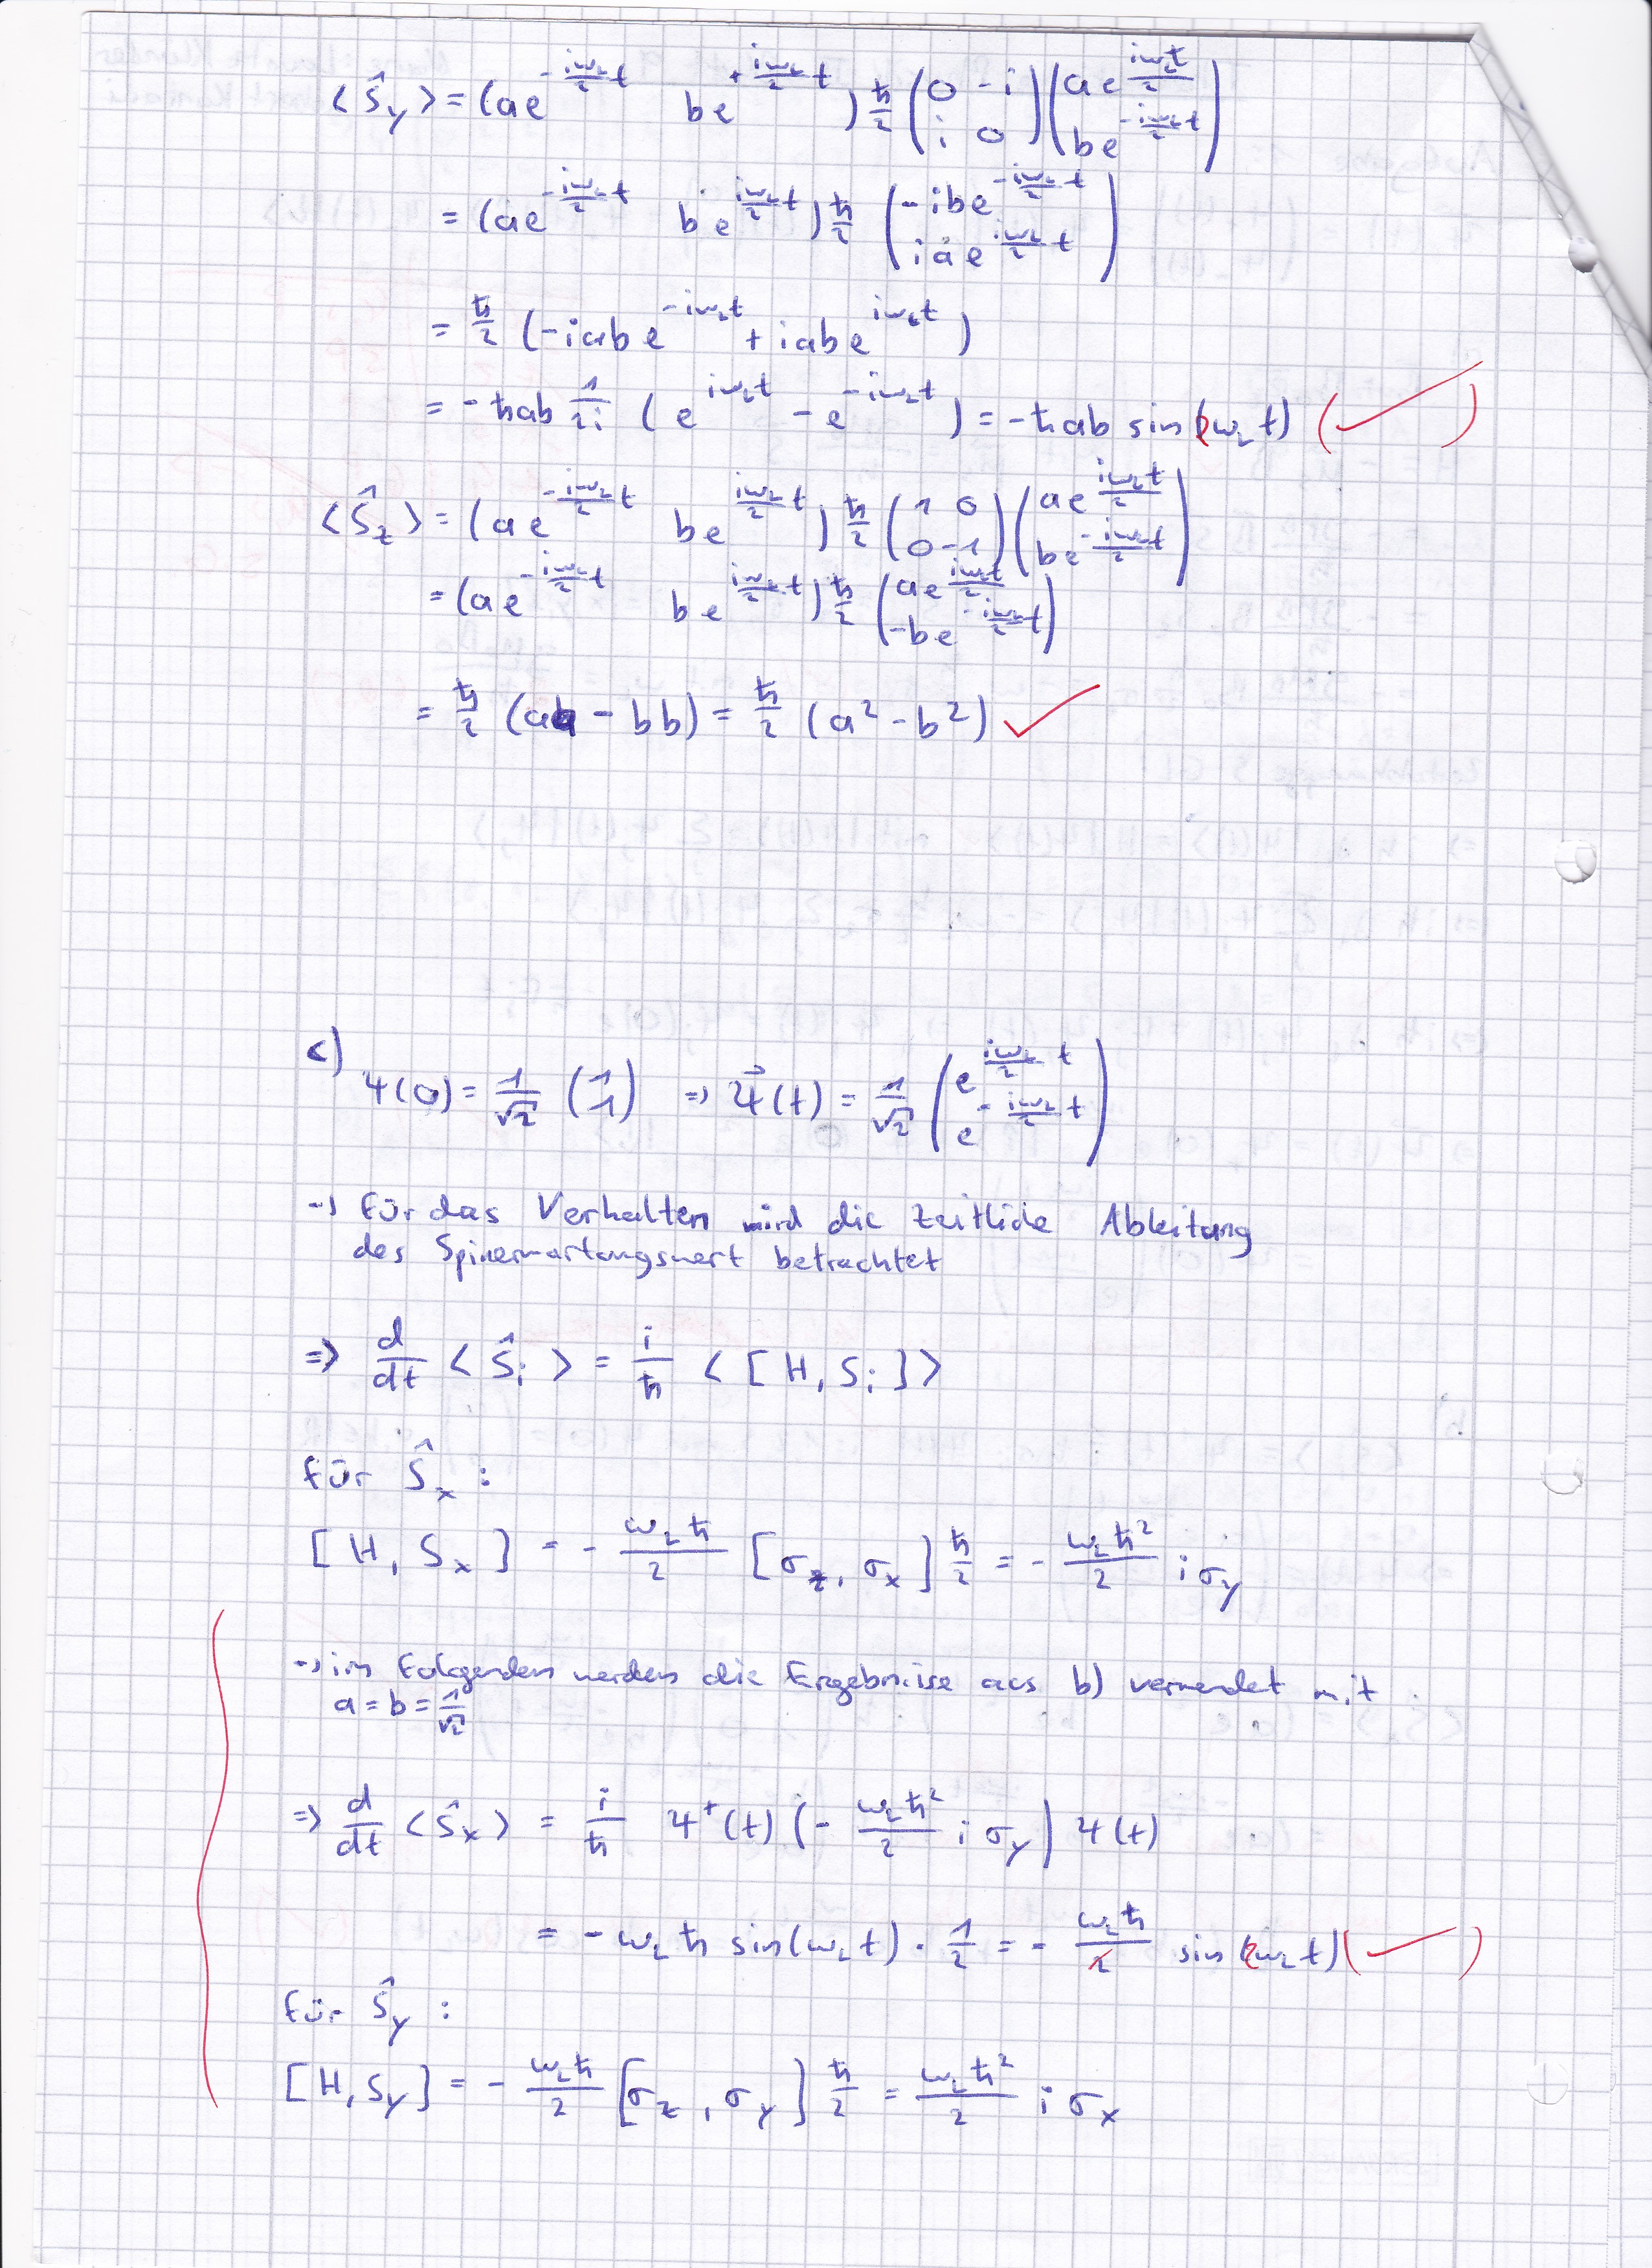 ⟨Ŝ_y⟩ = (ae^{-\frac{iω_L}{2}t}   be^{+\frac{iω_L}{2}t}) \frac{ħ}{2} \begin{pmatrix} 0 & -i \\ i & 0 \end{pmatrix} \begin{pmatrix} ae^{\frac{iω_L t}{2}} \\ be^{-\frac{iω_L}{2}t} \end{pmatrix}
= (ae^{-\frac{iω_L}{2}t}   be^{\frac{iω_L}{2}t}) \frac{ħ}{2} \begin{pmatrix} -ibe^{-\frac{iω_L}{2}t} \\ iae^{\frac{iω_L}{2}t} \end{pmatrix}
= \frac{ħ}{2} (-iabe^{-iω_L t} + iabe^{iω_L t})
= -ħab \frac{1}{2i} (e^{iω_L t} - e^{-iω_L t}) = -ħab sin(2ω_L t) (✓)
⟨Ŝ_z⟩ = (ae^{-\frac{iω_L}{2}t}   be^{\frac{iω_L}{2}t}) \frac{ħ}{2} \begin{pmatrix} 1 & 0 \\ 0 & -1 \end{pmatrix} \begin{pmatrix} ae^{\frac{iω_L t}{2}} \\ be^{-\frac{iω_L t}{2}} \end{pmatrix}
= (ae^{-\frac{iω_L}{2}t}   be^{\frac{iω_L}{2}t}) \frac{ħ}{2} \begin{pmatrix} ae^{\frac{iω_L t}{2}} \\ -be^{-\frac{iω_L}{2}t} \end{pmatrix}
= \frac{ħ}{2} (aa - bb) = \frac{ħ}{2} (a² - b²) ✓
c)
Ψ(0) = \frac{1}{√2} \begin{pmatrix} 1 \\ 1 \end{pmatrix} ⇒ \vec{Ψ}(t) = \frac{1}{√2} \begin{pmatrix} e^{\frac{iω_L}{2}t} \\ e^{-\frac{iω_L}{2}t} \end{pmatrix}
→ Für das Verhalten wird die zeitliche Ableitung
des Spinerwartungswert betrachtet
⇒ \frac{d}{dt} ⟨Ŝ_i⟩ = \frac{i}{ħ} ⟨[H, S_i]⟩
Für Ŝ_x :
[H, S_x] = -\frac{ω_L ħ}{2} [σ_z, σ_x] \frac{ħ}{2} = -\frac{ω_L ħ²}{2} i σ_y
→ im Folgenden werden die Ergebnisse aus b) verwendet mit
a = b = \frac{1}{√2}
⇒ \frac{d}{dt} ⟨Ŝ_x⟩ = \frac{i}{ħ} Ψ⁺(t) (-\frac{ω_L ħ²}{2} i σ_y) Ψ(t)
= -ω_L ħ sin(ω_L t) · \frac{1}{2} = -\frac{ω_L ħ}{2} sin(2ω_L t) (✓)
Für Ŝ_y :
[H, S_y] = -\frac{ω_L ħ}{2} [σ_z, σ_y] \frac{ħ}{2} = \frac{ω_L ħ²}{2} i σ_x